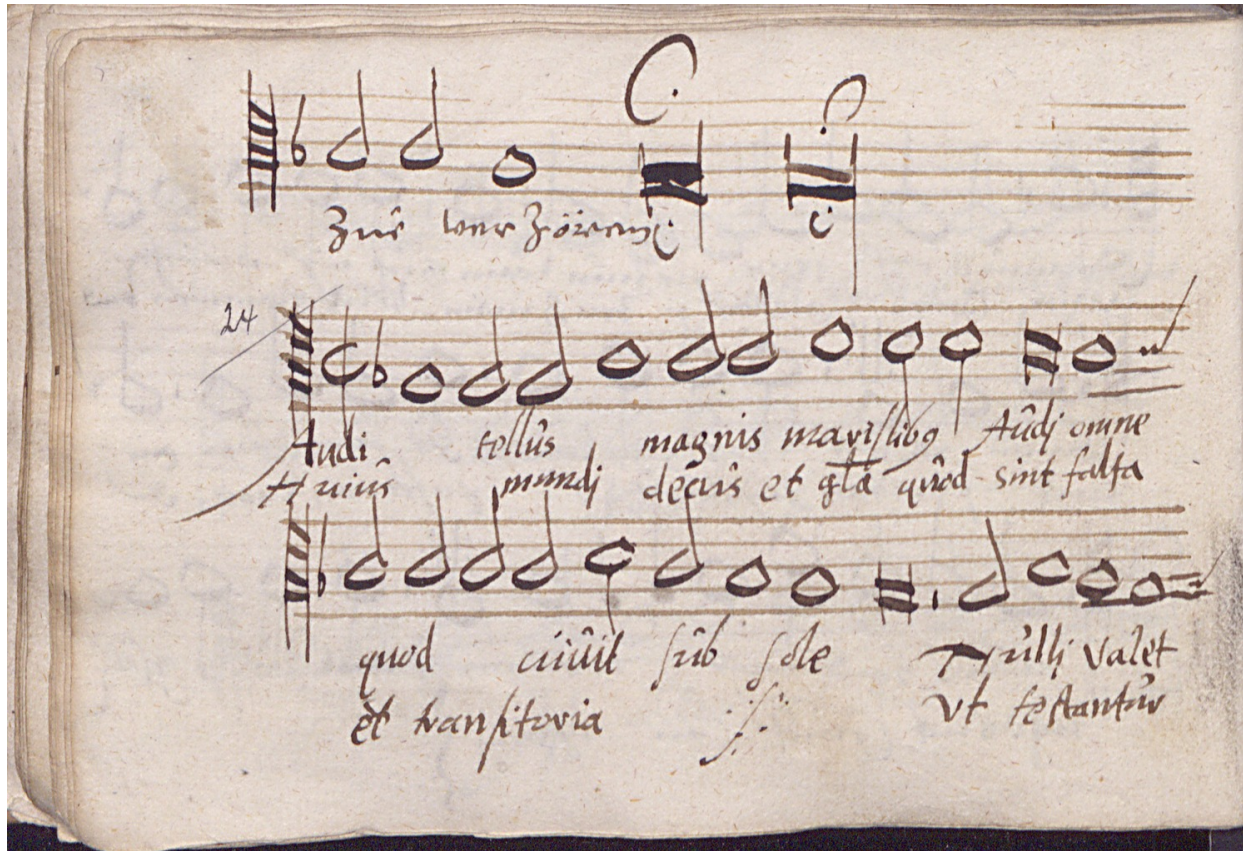 Zuͦ verZören
24
Audi tellus magnis maris lib9 Audj omne
Huius mundj decus et gla quod sint falsa
quod uiuit sub sole Nullj valet
et transitoria Vt testantur